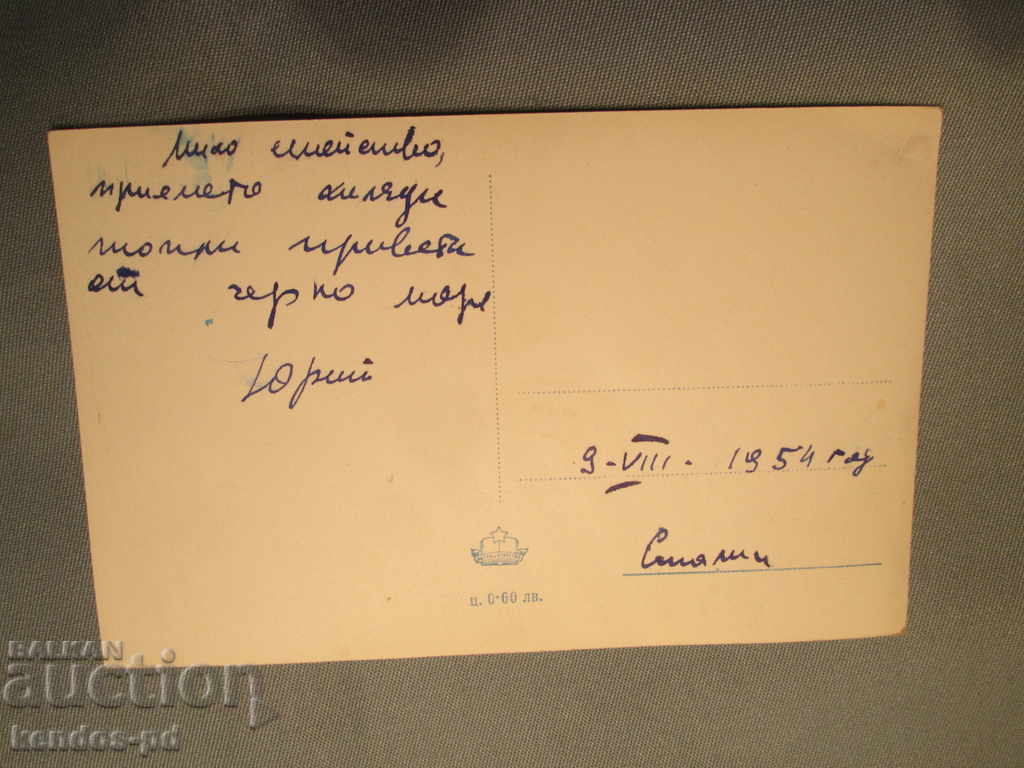 Мило семейство,
приемете хиляди
топли привети
от черно море
Юрий
9-VIII- 1954 год
ц. 0·60 лв.
BALKAN
auction
kendos-pd